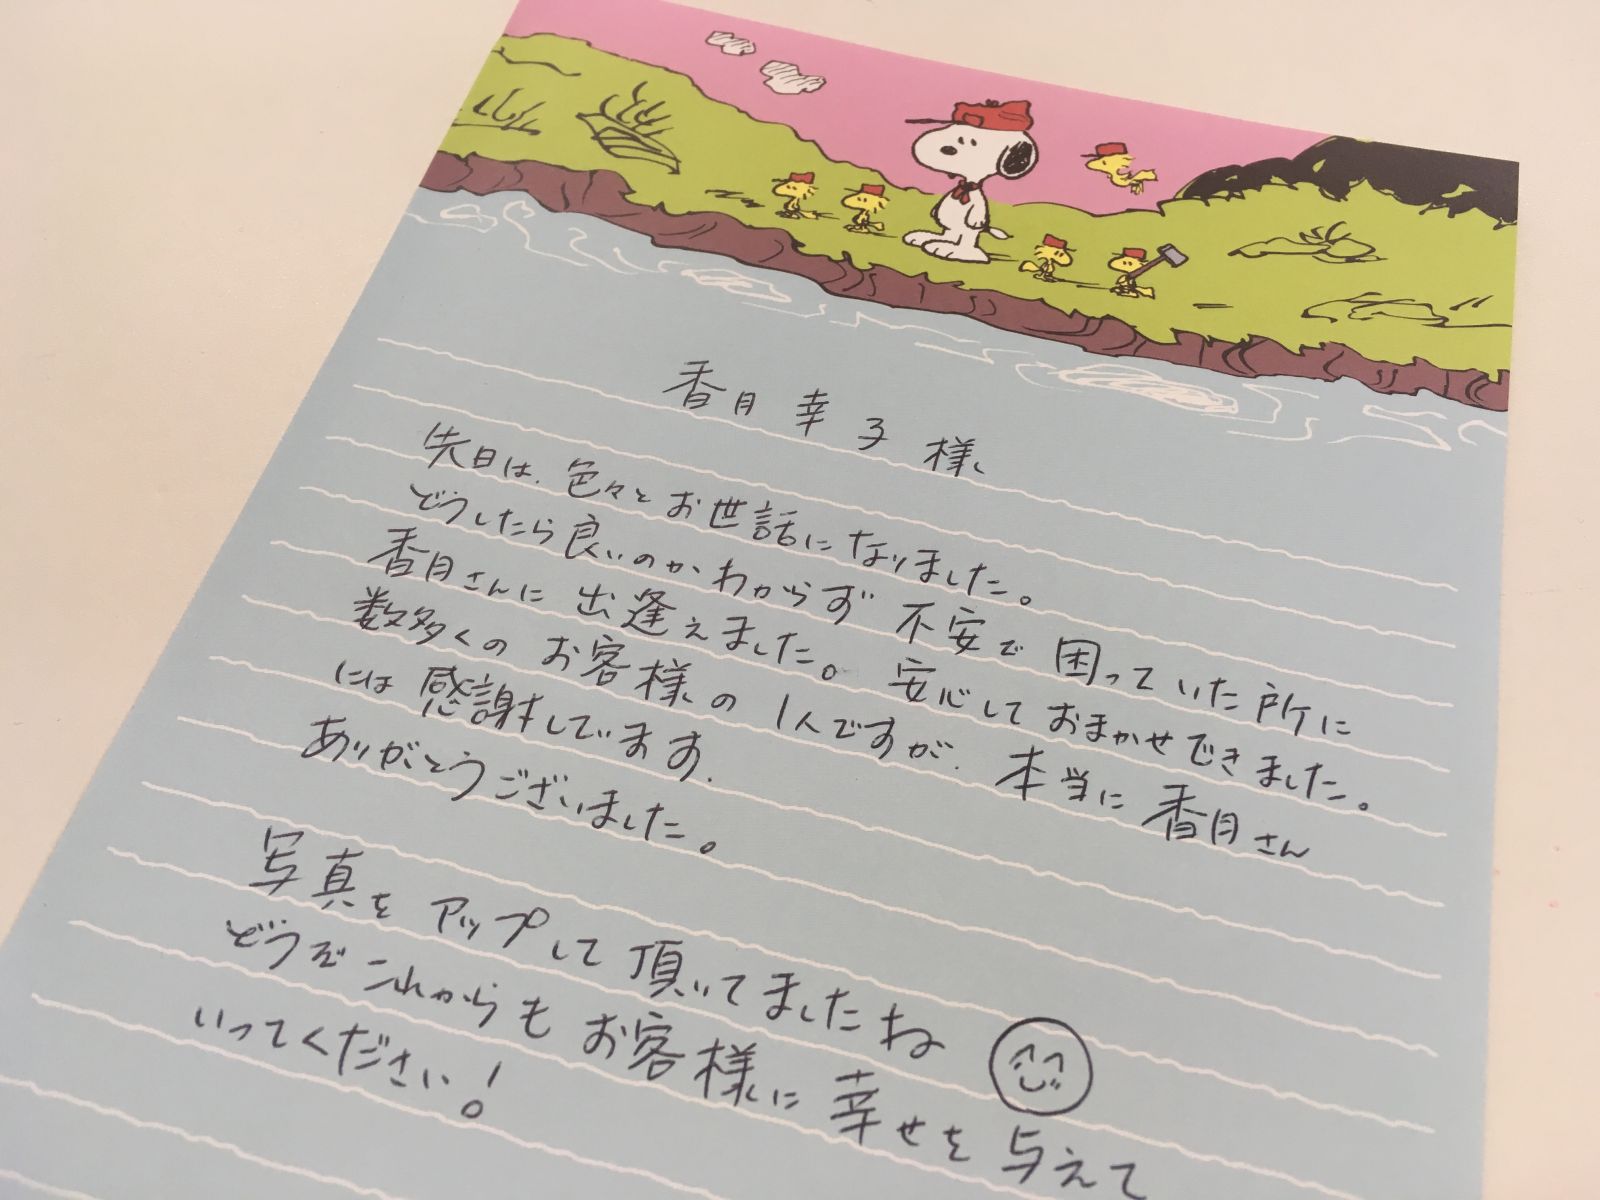 香月 幸子 様
先日は、色々とお世話になりました。
どうしたら良いのかわからず不安で困っていた所に
香月さんに出逢えました。安心しておまかせできました。
数多くのお客様の1人ですが、本当に香月さん
には感謝しています.
ありがとうございました。
写真をアップして頂いてましたね
どうぞこれからもお客様に幸せを与えて
いってください!